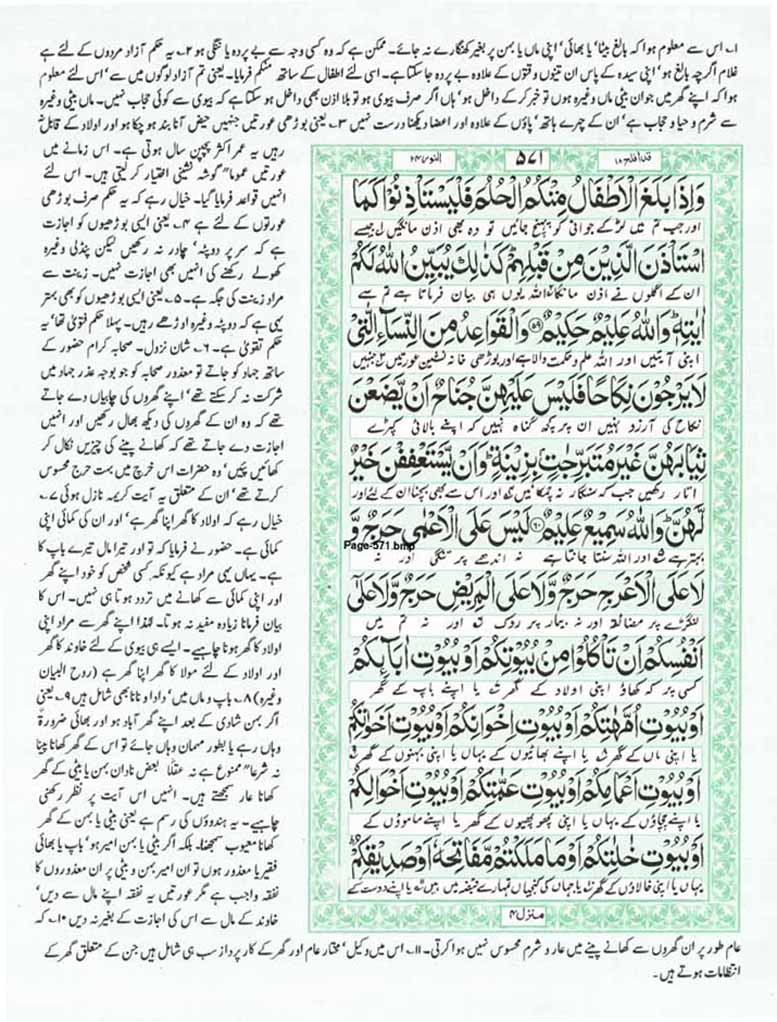 ۱۔ اس سے معلوم ہوا کہ بالغ بیٹا' یا بھائی' اپنی ماں یا بہن پر بغیر کھنگارے نہ جائے۔ ممکن ہے کہ وہ کسی وجہ سے بے پردہ یا ننگی ہو ۲۔ یہ حکم آزاد مردوں کے لئے ہے
غلام اگرچہ بالغ ہو' اپنی سیدہ کے پاس ان تینوں وقتوں کے علاوہ بے پردہ جا سکتا ہے۔ اسی لئے اطفال کے ساتھ منکم فرمایا۔ یعنی تم آزاد لوگوں میں سے' اس لئے معلوم
ہوا کہ اپنے گھر میں جوان بیٹی ماں وغیرہ ہوں تو خبر کر کے داخل ہو' ہاں اگر صرف بیوی ہو تو بلا اذن بھی داخل ہو سکتا ہے کہ بیوی سے کوئی حجاب نہیں۔ ماں بیٹی وغیرہ
سے شرم و حیا و حجاب ہے' ان کے چہرے ہاتھ' پاؤں کے علاوہ اور اعضا دیکھنا درست نہیں ۳۔ یعنی بوڑھی عورتیں جنہیں حیض آنا بند ہو چکا ہو اور اولاد کے قابل نہ
قد افلح ۱۸
۵۷۱
النور ۲۴
وَاِذَا بَلَغَ الْاَطْفَالُ مِنْكُمُ الْحُلُمَ فَلْيَسْتَاْذِنُوْا كَمَا
اور جب تم میں لڑکے جوانی کو پہنچ جائیں تو وہ بھی اذن مانگیں جیسے
اسْتَاْذَنَ الَّذِيْنَ مِنْ قَبْلِهِمْ كَذٰلِكَ يُبَيِّنُ اللّٰهُ لَكُمْ
ان کے اگلوں نے اذن مانگا اللہ یوں ہی بیان فرماتا ہے تم سے
اٰيٰتِهٖ وَاللّٰهُ عَلِيْمٌ حَكِيْمٌ ۵۹ وَالْقَوَاعِدُ مِنَ النِّسَآءِ الّٰتِيْ
اپنی آیتیں اور اللہ علم و حکمت والا ہے اور بوڑھی خانہ نشین عورتیں جنہیں
لَا يَرْجُوْنَ نِكَاحًا فَلَيْسَ عَلَيْهِنَّ جُنَاحٌ اَنْ يَّضَعْنَ
نکاح کی آرزو نہیں ان پر کچھ گناہ نہیں کہ اپنے بالائی کپڑے
ثِيَابَهُنَّ غَيْرَ مُتَبَرِّجٰتٍ بِزِيْنَةٍ وَاَنْ يَّسْتَعْفِفْنَ خَيْرٌ
اتار رکھیں جب کہ سنگار نہ چمکائیں اور اس سے بھی بچنا ان کے لئے اور
لَّهُنَّ وَاللّٰهُ سَمِيْعٌ عَلِيْمٌ ۶۰ لَيْسَ عَلَى الْاَعْمٰى حَرَجٌ وَّ
Page-571.bmp
بہتر ہے اور اللہ سنتا جانتا ہے نہ اندھے پر تنگی اور نہ
لَا عَلَى الْاَعْرَجِ حَرَجٌ وَّلَا عَلَى الْمَرِيْضِ حَرَجٌ وَّلَا عَلٰٓى
لنگڑے پر مضائقہ اور نہ بیمار پر روک اور نہ تم میں
اَنْفُسِكُمْ اَنْ تَاْكُلُوْا مِنْ بُيُوْتِكُمْ اَوْ بُيُوْتِ اٰبَآئِكُمْ
کسی پر کہ کھاؤ اپنی اولاد کے گھر یا اپنے باپ کے گھر
اَوْ بُيُوْتِ اُمَّهٰتِكُمْ اَوْ بُيُوْتِ اِخْوَانِكُمْ اَوْ بُيُوْتِ اَخَوٰتِكُمْ
یا اپنی ماں کے گھر یا اپنے بھائیوں کے یہاں یا اپنی بہنوں کے گھر
اَوْ بُيُوْتِ اَعْمَامِكُمْ اَوْ بُيُوْتِ عَمّٰتِكُمْ اَوْ بُيُوْتِ اَخْوَالِكُمْ
یا اپنے چچاؤں کے یہاں یا اپنی پھوپھیوں کے گھر یا اپنے ماموؤں کے
اَوْ بُيُوْتِ خٰلٰتِكُمْ اَوْ مَا مَلَكْتُمْ مَّفَاتِحَهٗٓ اَوْ صَدِيْقِكُمْ
یہاں یا اپنی خالاؤں کے گھر یا جہاں کی کنجیاں تمہارے قبضہ میں ہیں یا اپنے دوست کے
منزل ۴
رہیں یہ عمر اکثر پچپن سال ہوتی ہے۔ اس زمانے میں
عورتیں عموما" گوشہ نشینی اختیار کر لیتی ہیں۔ اس لئے
انہیں قواعد فرمایا گیا۔ خیال رہے کہ یہ حکم صرف بوڑھی
عورتوں کے لئے ہے ۴۔ یعنی ایسی بوڑھیوں کو اجازت
ہے کہ سر پر دوپٹہ' چادر نہ رکھیں لیکن پنڈلی وغیرہ
کھولے رکھنے کی انہیں بھی اجازت نہیں۔ زینت سے
مراد زینت کی جگہ ہے۔ ۵۔ یعنی ایسی بوڑھیوں کو بھی بہتر
یہی ہے کہ دوپٹہ وغیرہ اوڑھے رہیں۔ پہلا حکم فتویٰ تھا' یہ
حکم تقویٰ ہے۔ ۶۔ شان نزول۔ صحابہ کرام حضور کے
ساتھ جہاد کو جاتے تو معذور صحابہ کو جو بوجہ عذر جہاد میں
شرکت نہ کر سکتے تھے' اپنے گھروں کی چابیاں دے جاتے
تھے کہ وہ ان کے گھروں کی دیکھ بھال رکھیں اور انہیں
اجازت دے جاتے تھے کہ کھانے پینے کی چیزیں نکال کر
کھائیں پئیں' وہ حضرات اس خرچ میں بہت حرج محسوس
کرتے تھے' ان کے متعلق یہ آیت کریمہ نازل ہوئی ۷۔
خیال رہے کہ اولاد کا گھر اپنا گھر ہے' اور ان کی کمائی اپنی
کمائی ہے۔ حضور نے فرمایا کہ تو اور تیرا مال تیرے باپ کا
ہے۔ یہاں یہی مراد ہے کیونکہ کسی شخص کو خود اپنے گھر
اور اپنی کمائی سے کھانے میں تردد ہوتا ہی نہیں۔ اس کا
بیان فرمانا زیادہ مفید نہ ہوتا۔ لہٰذا اپنے گھر سے مراد اپنی
اولاد کا گھر ہونا چاہیے۔ ایسے ہی بیوی کے لئے خاوند کا گھر
اور اولاد کے لئے مولا کا گھر اپنا گھر ہے (روح البیان
وغیرہ) ۸۔ باپ و ماں میں' دادا و نانا بھی شامل ہیں ۹۔ یعنی
اگر بہن شادی کے بعد اپنے گھر آباد ہو اور بھائی ضرورۃً
وہاں رہے یا بطور مہمان وہاں جائے تو اس کے گھر کھانا پینا
نہ شرعا" ممنوع ہے نہ عقلا" بعض نادان بہن یا بیٹی کے گھر
کھانا عار سمجھتے ہیں۔ انہیں اس آیت پر نظر رکھنی
چاہیے۔ یہ ہندوؤں کی رسم ہے یعنی بیٹی یا بہن کے گھر
کھانا معیوب سمجھنا۔ بلکہ اگر بیٹی یا بہن امیر ہو' باپ یا بھائی
فقیر یا معذور ہوں تو ان امیر بہن و بیٹی پر ان معذوروں کا
نفقہ واجب ہے مگر عورتیں یہ نفقہ اپنے مال سے دیں'
خاوند کے مال سے اس کی اجازت کے بغیر نہ دیں ۱۰۔ کہ
عام طور پر ان گھروں سے کھانے پینے میں عار و شرم محسوس نہیں ہوا کرتی۔ ۱۱۔ اس میں وکیل' مختار عام اور گھر کے کارپرداز سب ہی شامل ہیں جن کے متعلق گھر کے
انتظامات ہوتے ہیں۔